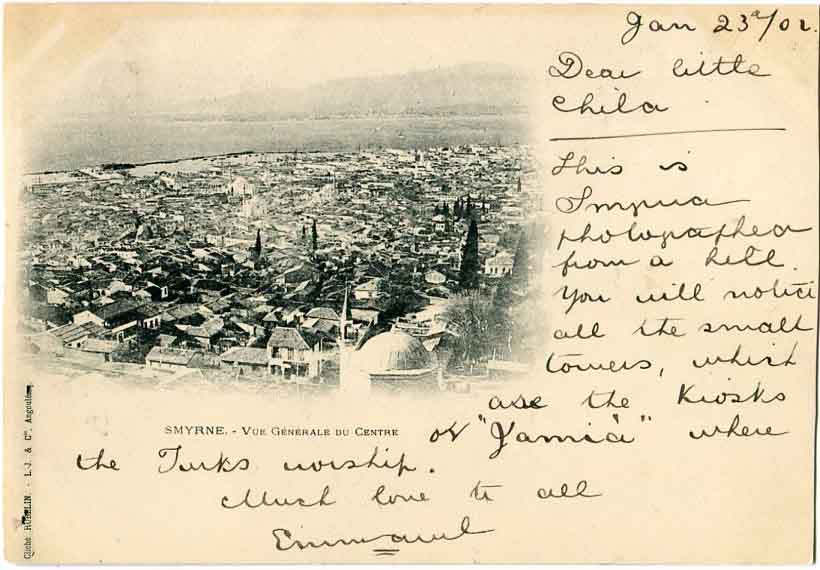 Jan 23d/02.
Dear little
child
This is
Smyrna
photographed
from a hill.
You will notice
all the small
towers, which
are the Kiosks
or "Jamia" where
the Turks worship.
Much love to all
Emmanuel
SMYRNE. - VUE GÉNÉRALE DU CENTRE
Cliché RUBELLIN. - L.J. & Cie, Angoulême